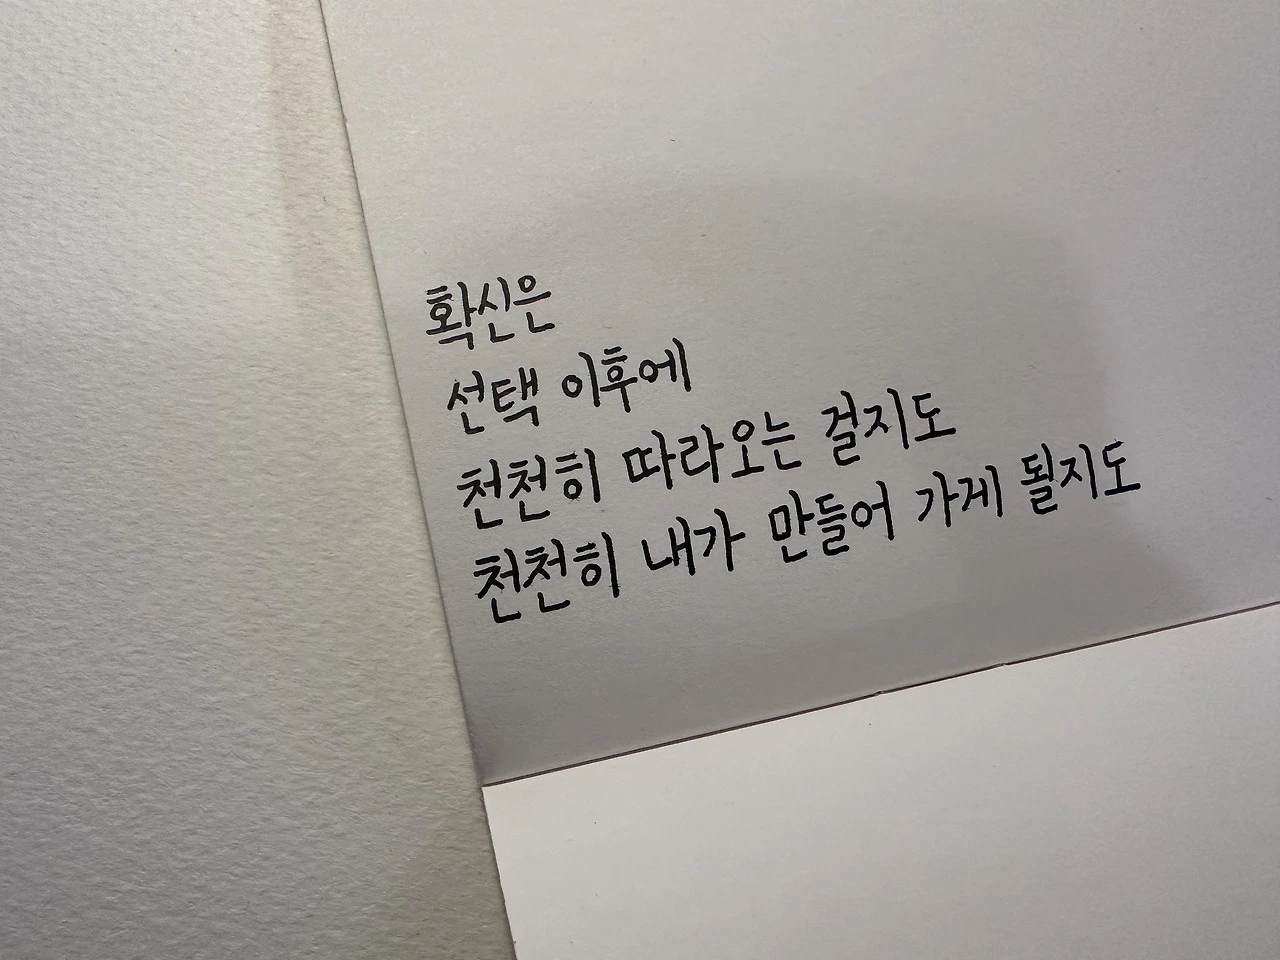 확신은
선택 이후에
천천히 따라오는 걸지도
천천히 내가 만들어 가게 될지도